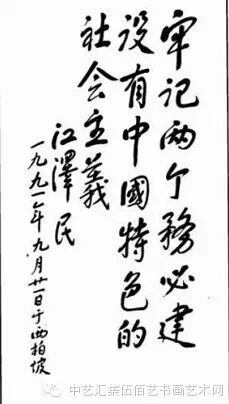 牢记两个務必建
设有中國特色的
社会主義
江澤民
一九九一年九月廿一日于西柏坡
中艺汇集伍佰艺书画艺术网